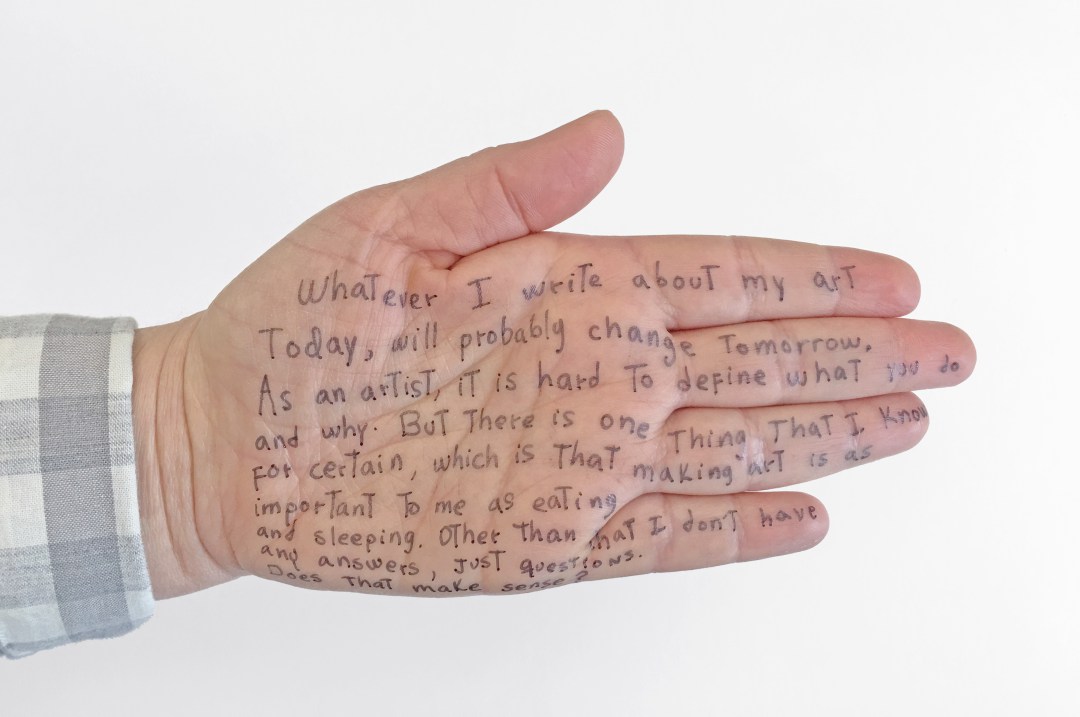 Whatever I write about my art
Today, will probably change Tomorrow.
As an artist, it is hard To define what you do
and why. But There is one Thing That I Know
For certain, which is That making art is as
important To me as eating
and sleeping. Other Than that I don't have
any answers, just questions.
Does That make sense?